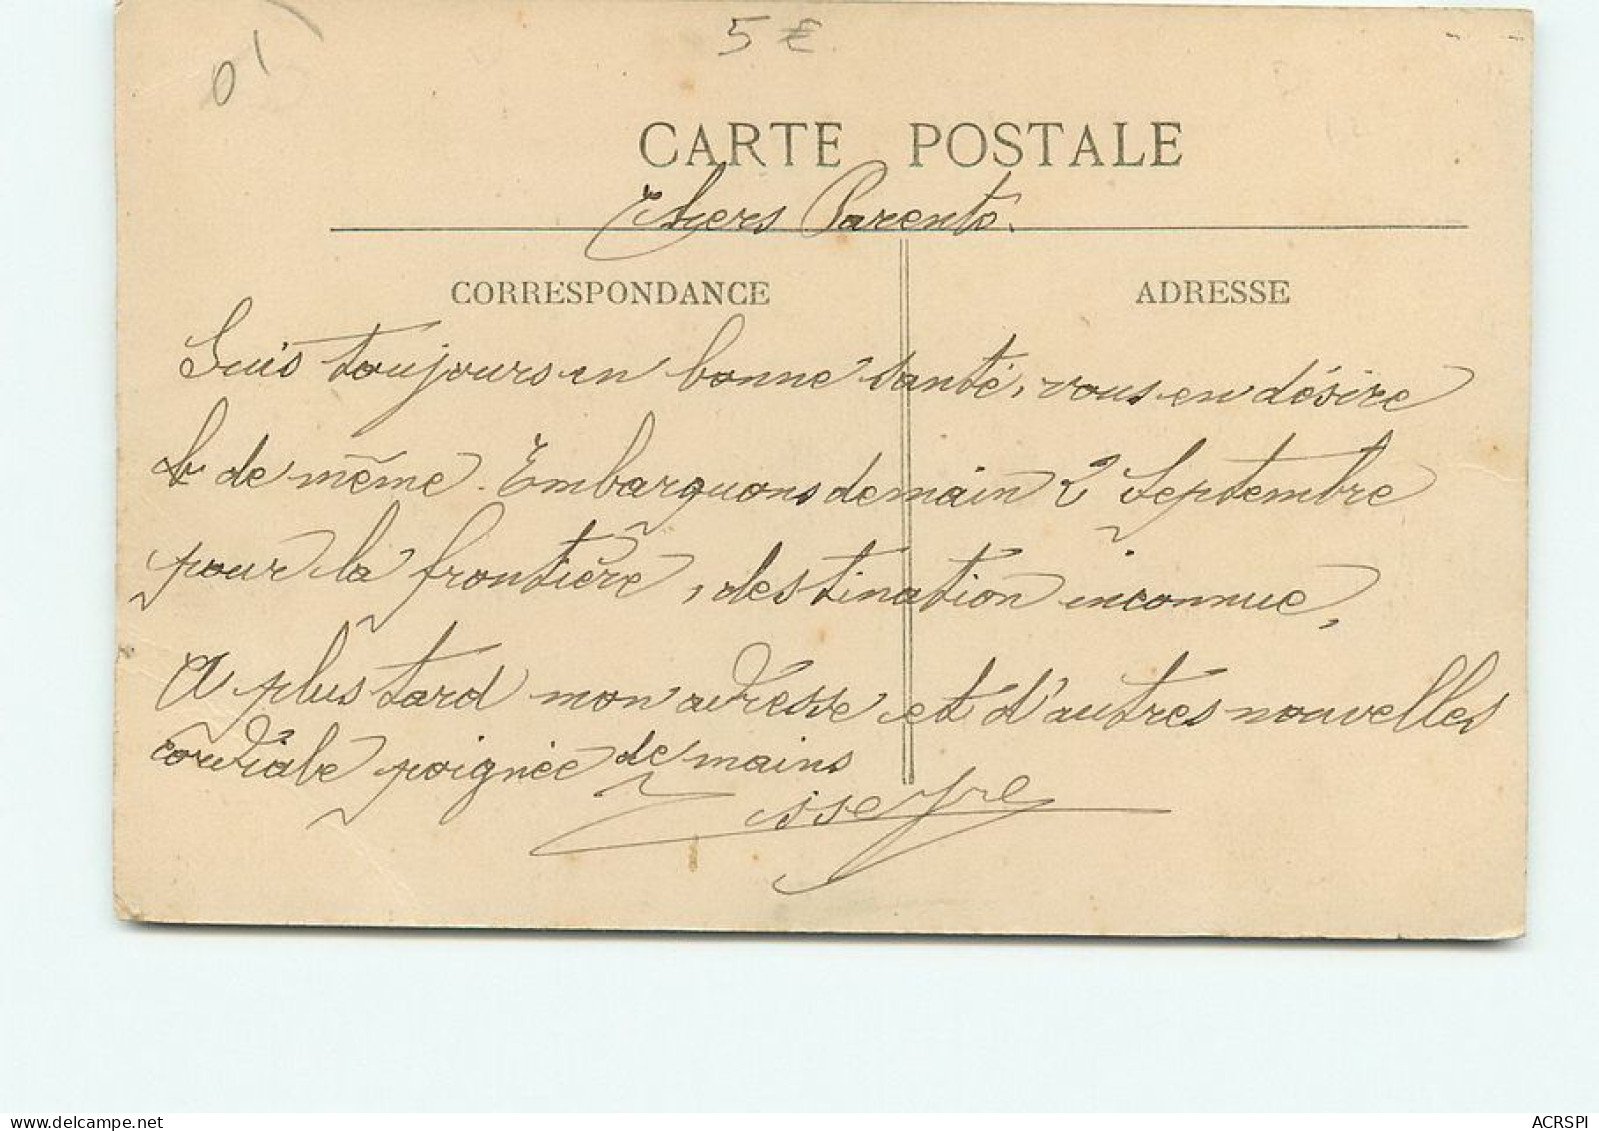 01
5 €
CARTE POSTALE
Chers Parents.
CORRESPONDANCE
ADRESSE
Suis toujours en bonne santé, vous en désire
de même. Embarquons demain 2 Septembre
pour la frontière, destination inconnue,
A plus tard mon adresse et d'autres nouvelles
cordiale poignée de mains
Tisseyre
ACRSPI